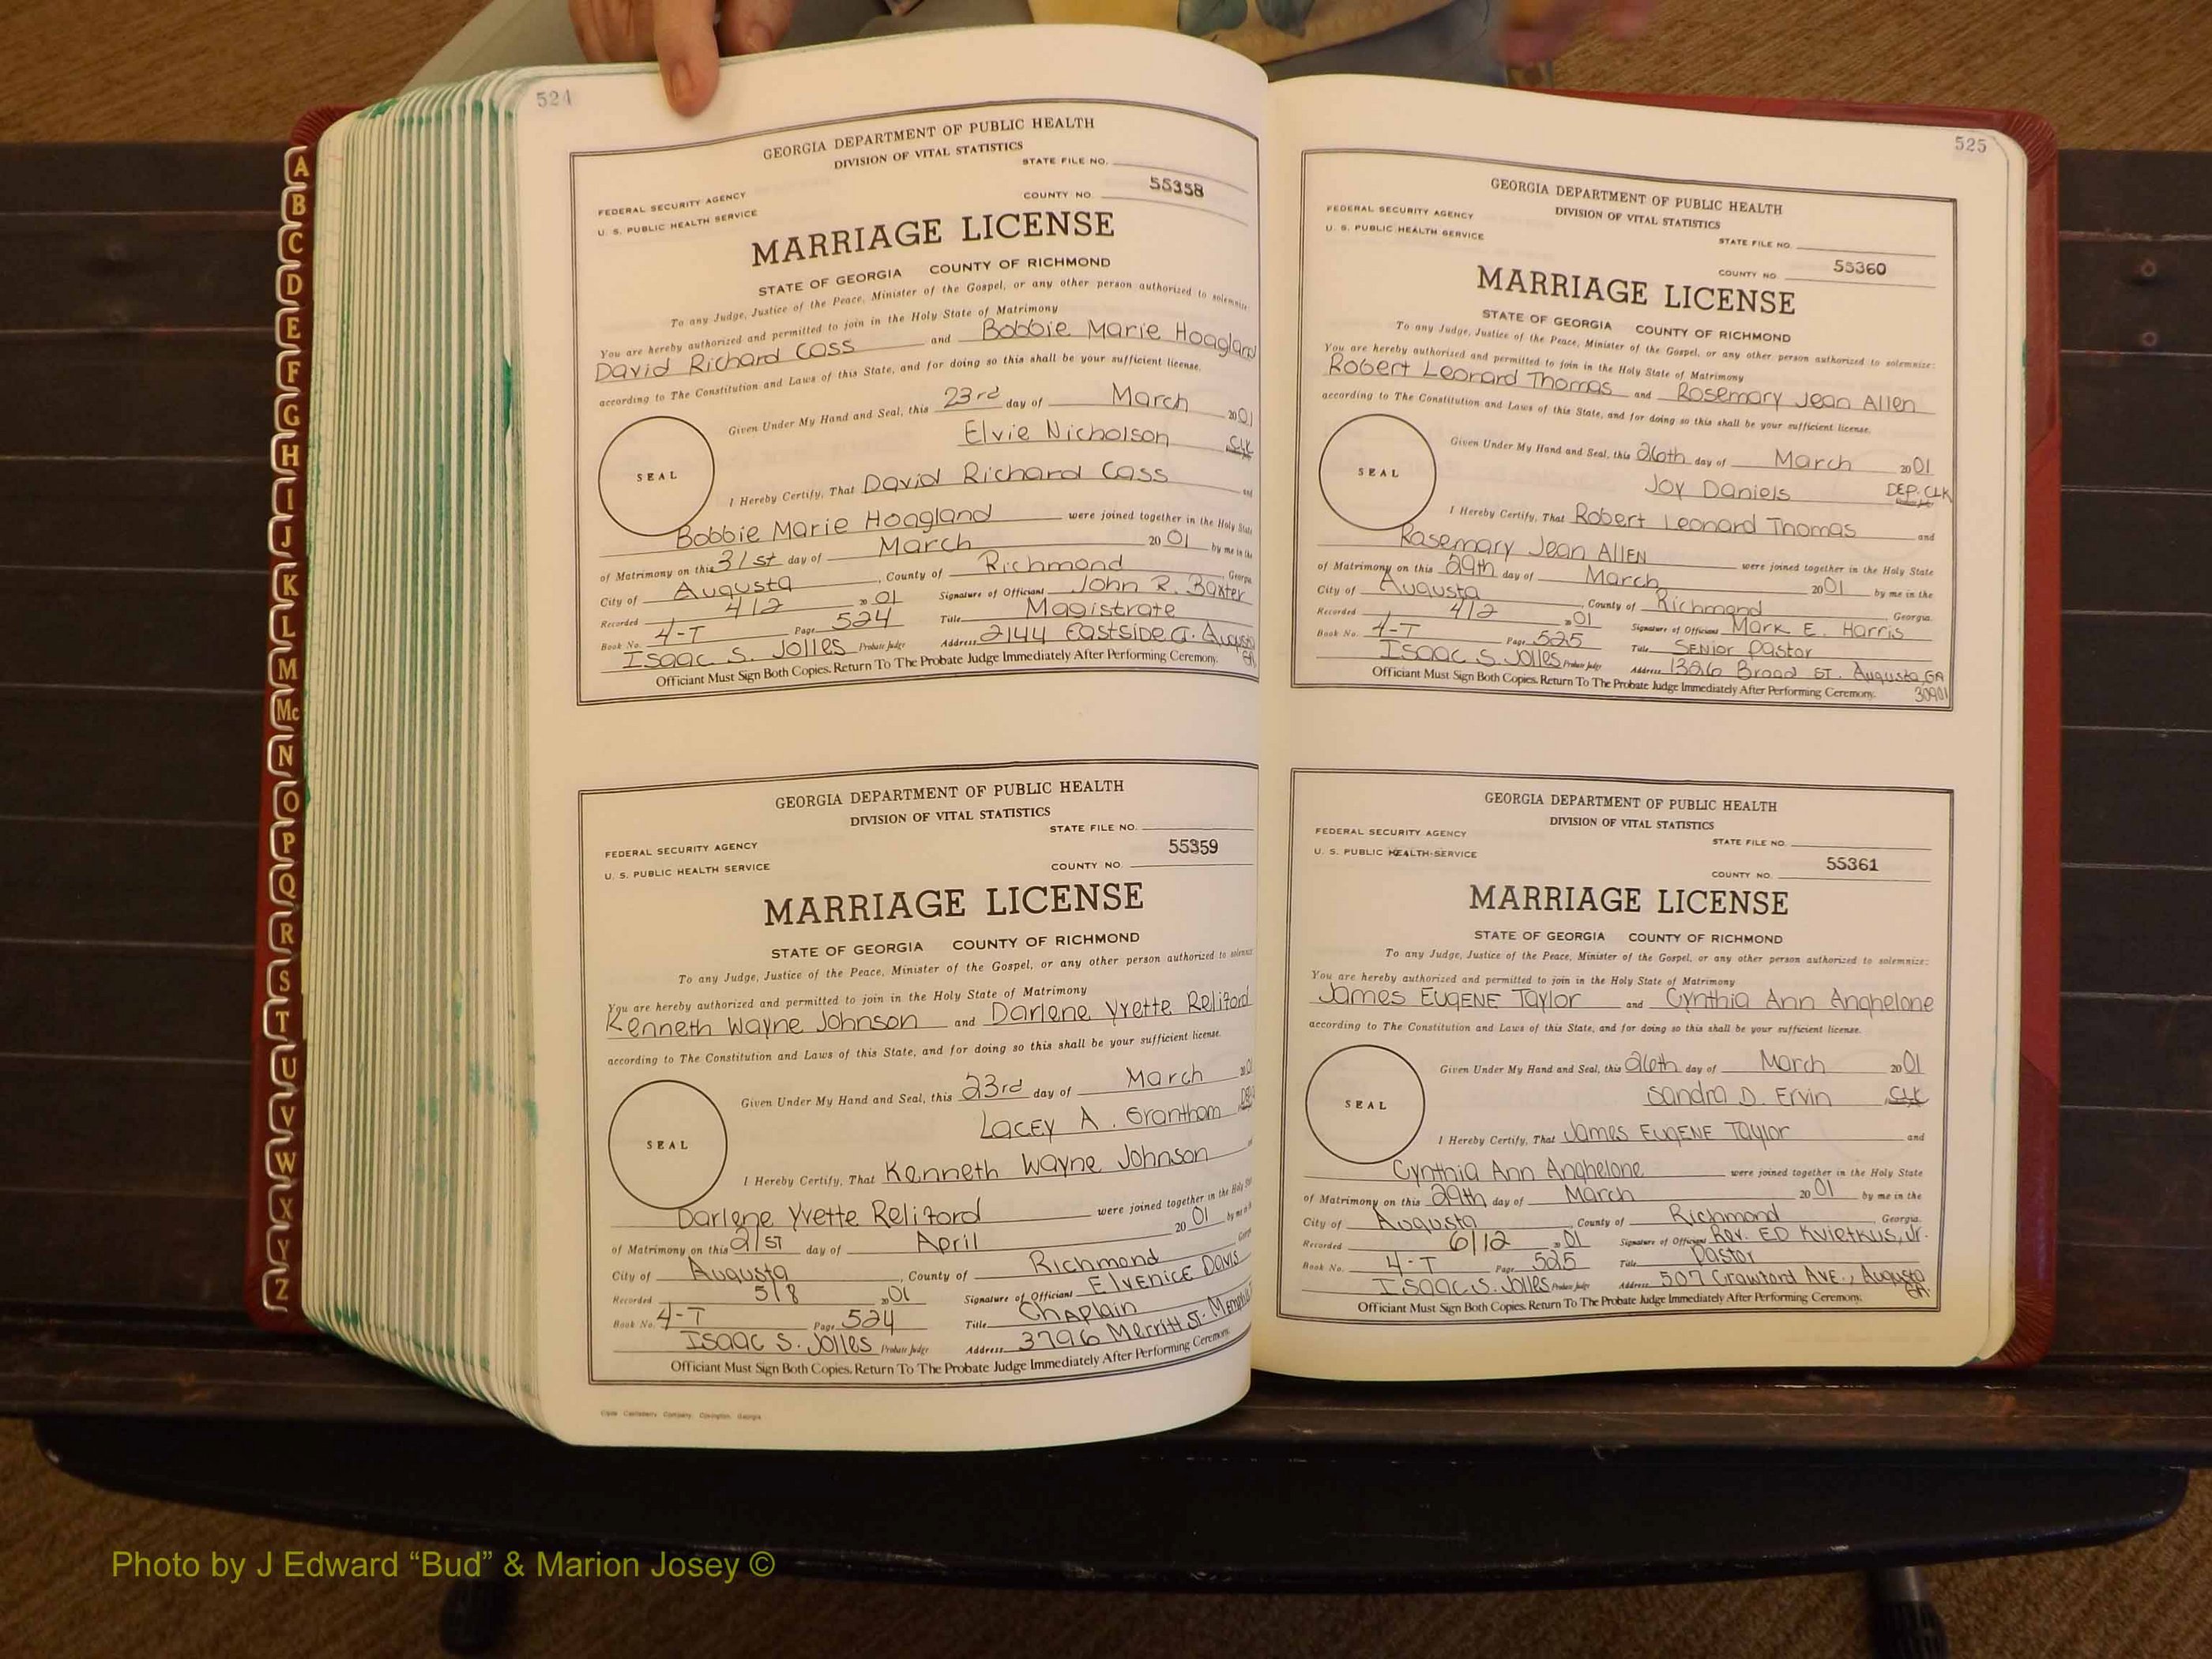 524
GEORGIA DEPARTMENT OF PUBLIC HEALTH
DIVISION OF VITAL STATISTICS
STATE FILE NO.
FEDERAL SECURITY AGENCY
U. S. PUBLIC HEALTH SERVICE
COUNTY NO. 55358
MARRIAGE LICENSE
STATE OF GEORGIA COUNTY OF RICHMOND
To any Judge, Justice of the Peace, Minister of the Gospel, or any other person authorized to solemnize:
You are hereby authorized and permitted to join in the Holy State of Matrimony
David Richard Cass and Bobbie Marie Hoagland
according to The Constitution and Laws of this State, and for doing so this shall be your sufficient license.
Given Under My Hand and Seal, this 23rd day of March 2001
Elvie Nicholson CLK
SEAL
I Hereby Certify, That David Richard Cass and
Bobbie Marie Hoagland were joined together in the Holy State
of Matrimony on this 31st day of March 2001 by me in the
City of Augusta, County of Richmond, Georgia
Recorded 4/2 2001 Signature of Officiant John R. Baxter
Book No. 4-T Page 524 Title Magistrate
Isaac S. Jolles Probate Judge Address 2144 Eastside Ct. Augusta GA
Officiant Must Sign Both Copies. Return To The Probate Judge Immediately After Performing Ceremony.
GEORGIA DEPARTMENT OF PUBLIC HEALTH
DIVISION OF VITAL STATISTICS
STATE FILE NO.
FEDERAL SECURITY AGENCY
U. S. PUBLIC HEALTH SERVICE
COUNTY NO. 55359
MARRIAGE LICENSE
STATE OF GEORGIA COUNTY OF RICHMOND
To any Judge, Justice of the Peace, Minister of the Gospel, or any other person authorized to solemnize
You are hereby authorized and permitted to join in the Holy State of Matrimony
Kenneth Wayne Johnson and Darlene Yvette Reliford
according to The Constitution and Laws of this State, and for doing so this shall be your sufficient license.
Given Under My Hand and Seal, this 23rd day of March 2001
Lacey A. Grantham
SEAL
I Hereby Certify, That Kenneth Wayne Johnson
Darlene Yvette Reliford were joined together in the Holy
of Matrimony on this 21st day of April 2001 by me in
City of Augusta, County of Richmond
Recorded 5/8 2001 Signature of Officiant Elvenice Davis
Book No. 4-T Page 524 Title Chaplain
Isaac S. Jolles Probate Judge Address 3796 Merritt St. Memphis
Officiant Must Sign Both Copies. Return To The Probate Judge Immediately After Performing Ceremony.
525
GEORGIA DEPARTMENT OF PUBLIC HEALTH
DIVISION OF VITAL STATISTICS
FEDERAL SECURITY AGENCY
U. S. PUBLIC HEALTH SERVICE
STATE FILE NO.
COUNTY NO. 55360
MARRIAGE LICENSE
STATE OF GEORGIA COUNTY OF RICHMOND
To any Judge, Justice of the Peace, Minister of the Gospel, or any other person authorized to solemnize:
You are hereby authorized and permitted to join in the Holy State of Matrimony
Robert Leonard Thomas and Rosemary Jean Allen
according to The Constitution and Laws of this State, and for doing so this shall be your sufficient license.
Given Under My Hand and Seal, this 26th day of March 2001
Joy Daniels DEP. CLK
SEAL
I Hereby Certify, That Robert Leonard Thomas and
Rosemary Jean Allen were joined together in the Holy State
of Matrimony on this 29th day of March 2001 by me in the
City of Augusta, County of Richmond Georgia.
Recorded 4/2 2001 Signature of Officiant Mark E. Harris
Book No. 4-T Page 525 Title Senior Pastor
Isaac S. Jolles Probate Judge Address 1386 Broad St. Augusta, GA 30901
Officiant Must Sign Both Copies. Return To The Probate Judge Immediately After Performing Ceremony.
GEORGIA DEPARTMENT OF PUBLIC HEALTH
DIVISION OF VITAL STATISTICS
FEDERAL SECURITY AGENCY
U. S. PUBLIC HEALTH-SERVICE
STATE FILE NO.
COUNTY NO. 55361
MARRIAGE LICENSE
STATE OF GEORGIA COUNTY OF RICHMOND
To any Judge, Justice of the Peace, Minister of the Gospel, or any other person authorized to solemnize:
You are hereby authorized and permitted to join in the Holy State of Matrimony
James Eugene Taylor and Cynthia Ann Anghelone
according to The Constitution and Laws of this State, and for doing so this shall be your sufficient license.
Given Under My Hand and Seal, this 26th day of March 2001
Sandra D. Ervin CLK
SEAL
I Hereby Certify, That James Eugene Taylor and
Cynthia Ann Anghelone were joined together in the Holy State
of Matrimony on this 29th day of March 2001 by me in the
City of Augusta, County of Richmond Georgia.
Recorded 6/12 2001 Signature of Officiant Rev. Ed Kvietkus, Jr.
Book No. 4-T Page 525 Title Pastor
Isaac S. Jolles Probate Judge Address 507 Crawford Ave., Augusta GA.
Officiant Must Sign Both Copies. Return To The Probate Judge Immediately After Performing Ceremony.
A
B
C
D
E
F
G
H
I
J
K
L
M
Mc
N
O
P
Q
R
S
T
U
V
W
X
Y
Z
Photo by J Edward “Bud” & Marion Josey ©